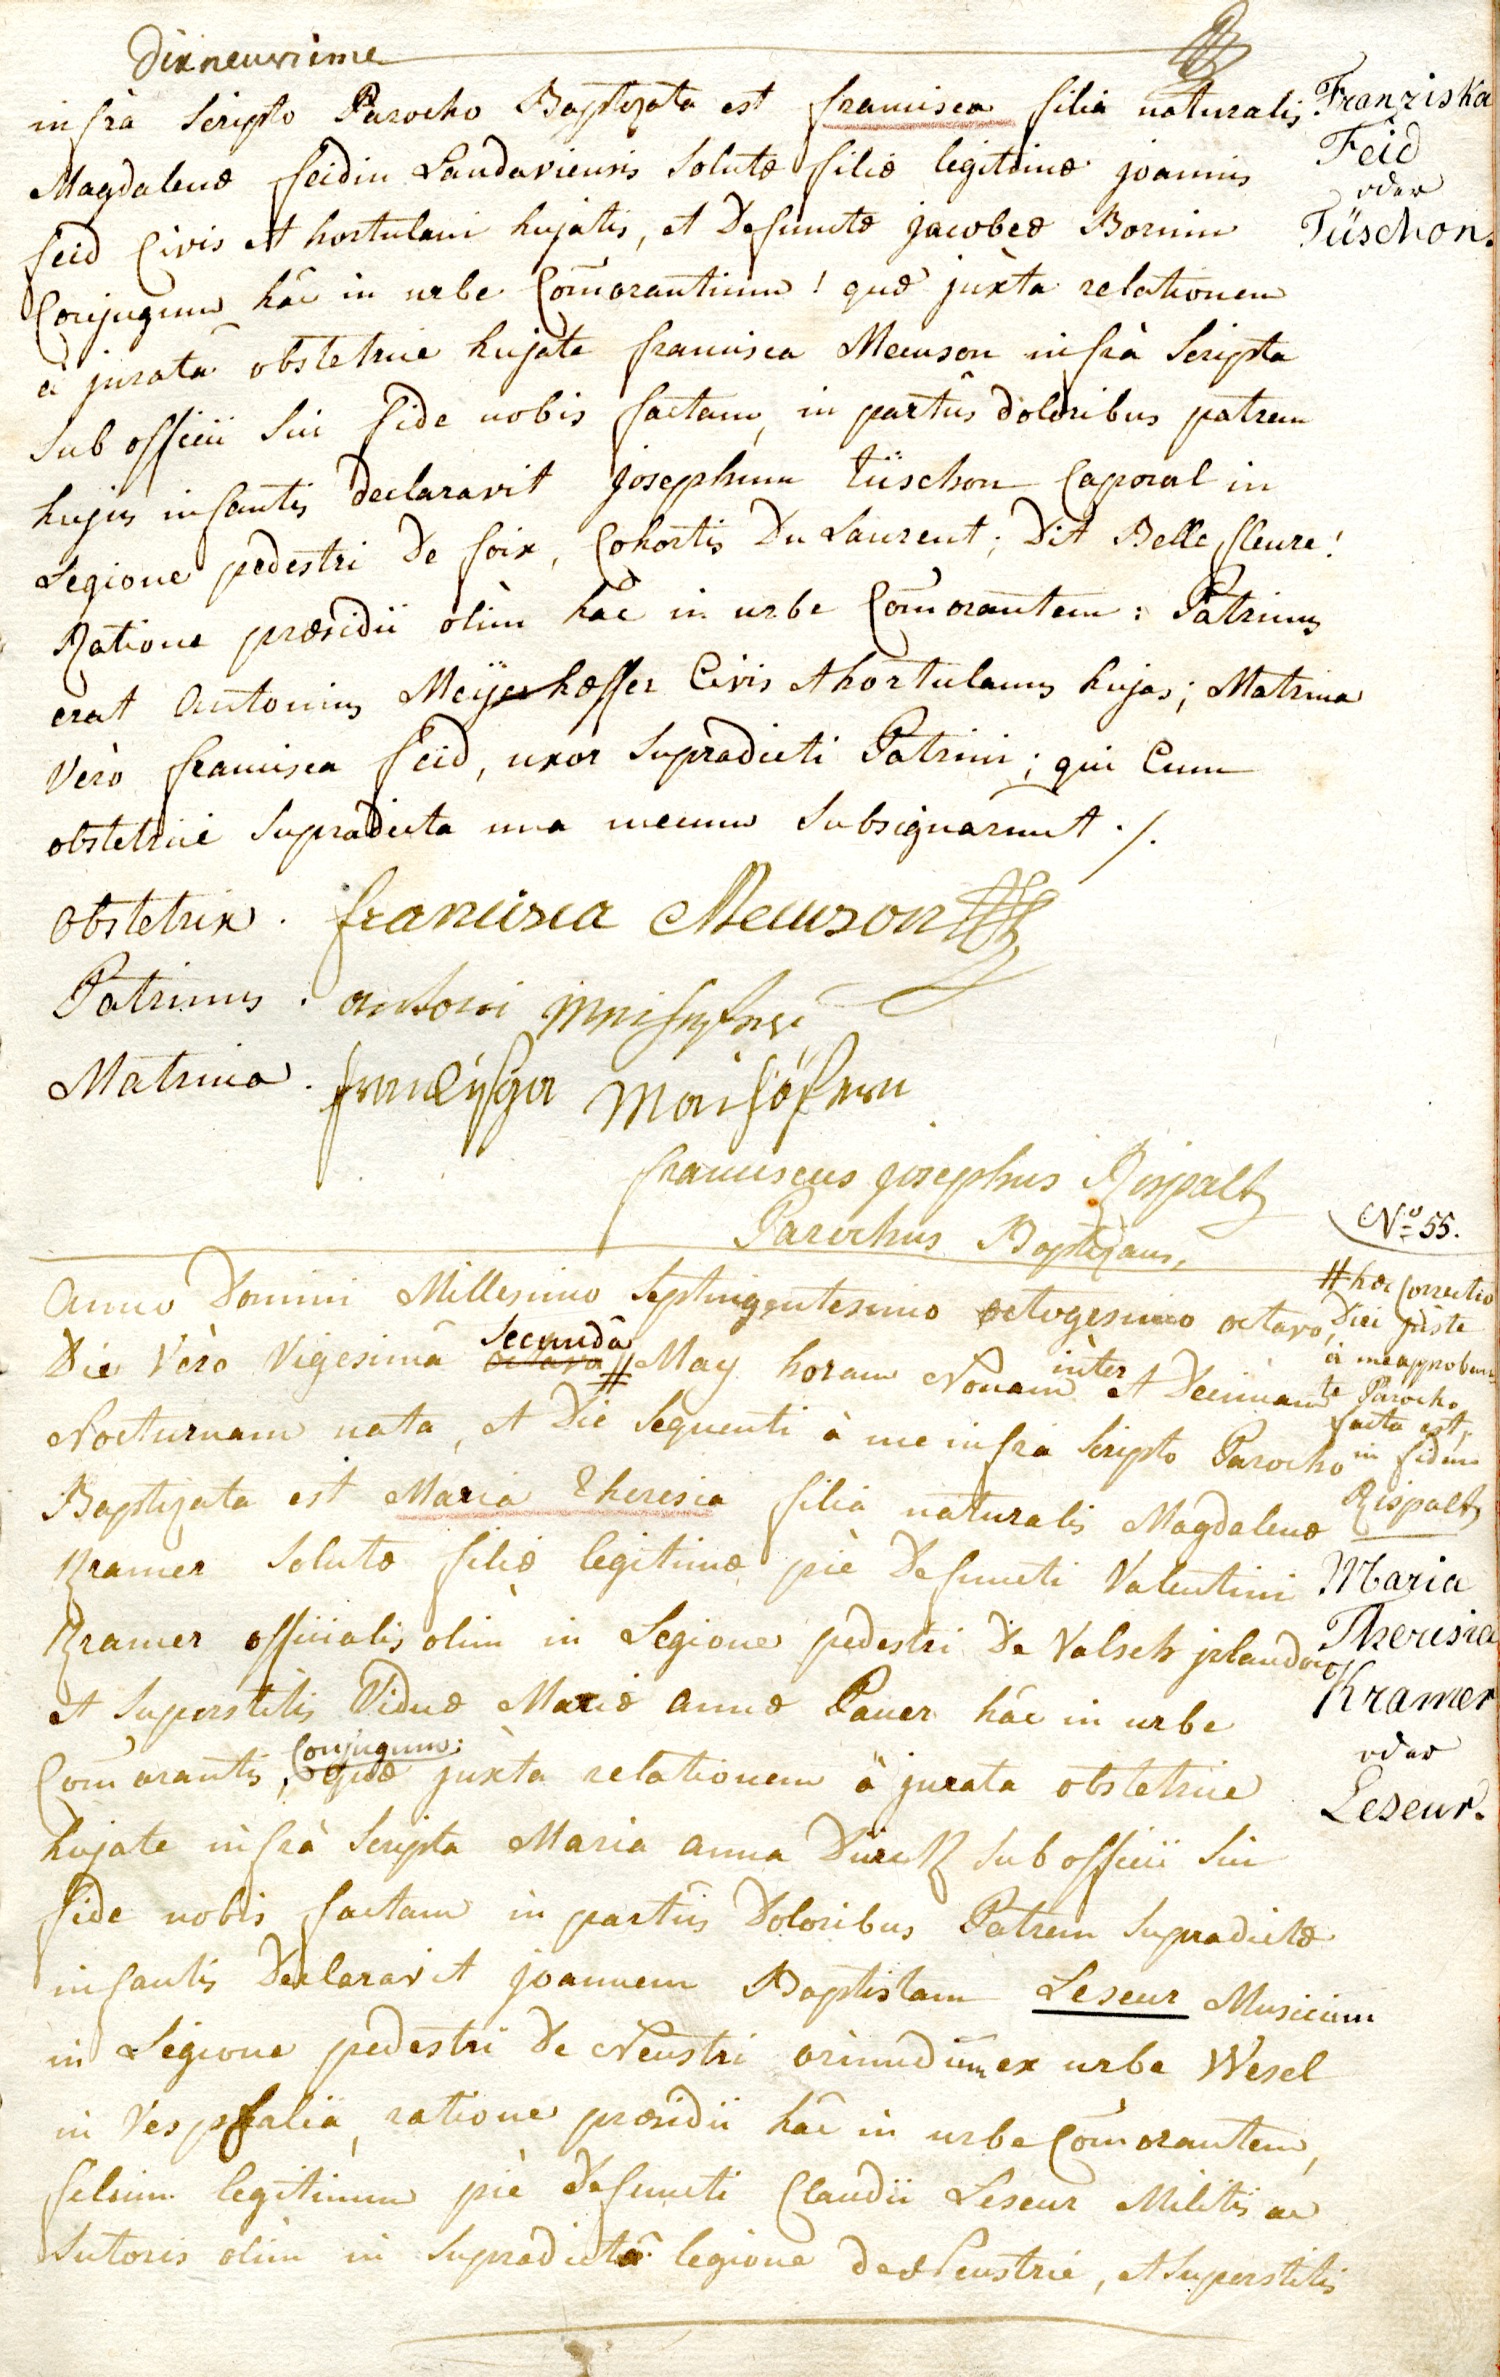 Dixneuvieme
infrà Scripto Parocho Baptizata est francisca filia naturalis
Magdalenæ feidin Landaviensis Solutæ filiæ legitimæ joannis
feid Civis et hortulani hujatis, et Defunctæ jacobeæ Bornin
Conjugum hâc in urbe Com̄orantium! quæ juxta relationem
à jurata obstetrice hujate francisca Meuson infrà Scripta
Sub officii Sui fide nobis factam, in partûs doloribus patrem
hujus infantis declaravit josephum Tüschon Caporal in
Legione pedestri De foix, Cohortis Du Laurent; Dit Belle fleure!
Ratione præsidii olim hâc in urbe Com̄orantem: Patrinus
erat Antonius Meijerhœffer Civis et hortulanus hujas; Matrina
Vèrò francisca feid, uxor Supradicti Patrini; qui Cum
obstetrice Supradicta una mecum Subsignarunt ./.
Obstetrix. francisca Meuson
Patrinus. antoni
Matrina.
franciscus josephus Rispalt
Parochus Baptizans,
Franziska
Feid
oder
Tüschon.
N.º 55.
Anno Domini Millesimo Septingentesimo octogesimo octavo,
Die Vèrò Vigesimâ octava Secundâ # May horam Nonam inter et Decimam
Nocturnam nata, et Die Sequenti à me infra Scripto Parocho
Baptizata est Maria Theresia filia naturalis Magdalenæ
Kramer Solutæ filiæ legitimæ piè Defuncti Valentini
Kramer officialis olim in Legione pedestri De Valsch jrlandois
et Superstitis Viduæ Mariæ Annæ Pauer hâc in urbe
Com̄orantis, Conjugum; quæ juxta relationem à jurata obstetrice
hujate infrà Scripta Maria Anna Dürck Sub officii Sui
fide nobis factam in partûs Doloribus Patrem Supradictæ
infantis Declaravit joannem Baptistam Leseur Musicum
in Legione pedestri De Neustri oriundum ex urbe Wesel
in Vespfalia, ratione præsidii hâc in urbe Com̄orantem,
filium legitimum piè Defuncti Claudii Leseur Militis ac
Sutoris olim in Supradictâ legione de Neustrie, et Superstitis
# hæc Correctio
Diei justè
à me approban-
te Parocho
facta est,
in fidem
Rispalt
Maria
Theresia
Kramer
oder
Leseur.